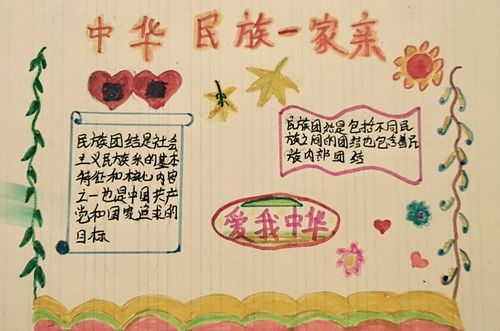 中华 民族一家亲
民族团结是社会
主义民族关系的基本
特征和核心内容
之一也是中国共产
党和国家追求的
目标
民族团结是包括不同民
族之间的团结也包含着民
族内部团结
爱我中华